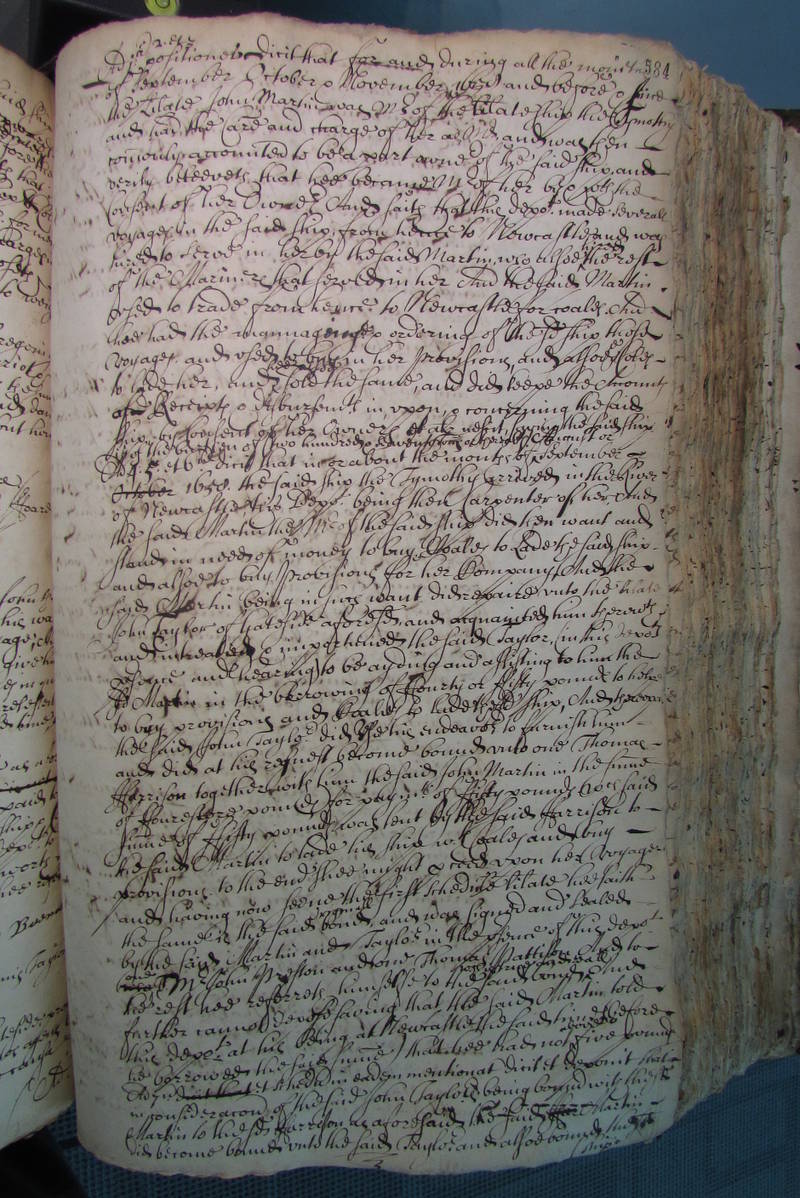 584
dicit that for and during all the moneths
of September October & November 1658 and before & since
the arlate John Martin was Mr of the arlate ship the Tymothy
and had the care and charge of her as Mr and was then
comonly accounted to be a part owner of the said ship and
verily beleeveth that hee became Mr of her by & wth the
consent of her Owners And saith that this depot made severall
voyages in the said ship from hence to Newcastle and was
hired to serve in her by the said Martin, who alsoe hired the rest
of the Mariners that served in her And the said Martin
used to trade from hence to Newcastle for coales And
hee had the mannageing & ordering of the sd ship those
voyages and used to buy in her provisions, and alsoe Coles
to lade her, and sold the same, and did keepe the Accounts
of Receipts & disbursemts in, upon, & concerning the said
ship, by consent of her Owners
of the burthen of two hundred
dicit that in or about the moneths of September
October 1658 the said ship the Tymothy arrived in the River
of Newcastle this depot being then Carpenter of her And
the said Martin the Mr of the said ship did then want and
stand in need of money to buy Coales to Lade the said ship
and alsoe to buy provisions for her Company, And the
said Martin being in such want did repaire unto the arlate
John Taylor of Gateside aforesd and acquainted him therewth
and intreated & importuned the said Taylor, (in this depots
presence and hearing) to be ayding and assisting to him the
sd Martin in the borrowing of fourty or fifty pounds to helpe
to buy provisions and Coales to lade the sd ship, And thereupon
the said John Taylor did use his endeavor to furnish him
and did at his request become bound unto one Thomas
Harrison together with him the said John Martin in the summe
of fourescore pounds for paymt of fifty pounds which said
summe of fifty pounds was lent by the said Harrison to
the said Martin to lade his ship wth Coales and buy
provisions to the end shee might proceed upon her voyage
and having now seene the first schedule arlate hee saith
the same is the said originall bond, and was signed and sealed
by the said Martin and Taylor in the presence of this depot
one Mr John Preston and one Thomas Mattison And to
the rest hee referreth himselfe to the said bond And
further cannot depose saving that the said Martin told
this depot at his being at Newcastle the said time before
he borrowed the said summe) that hee had not five pounds
dicit et deponit that
in consideracon of the said John Taylors being bound with the sd
Martin to the sd Harrison as aforesaid the said Martin
did become bound unto the said Taylor and alsoe bound the sd
ship